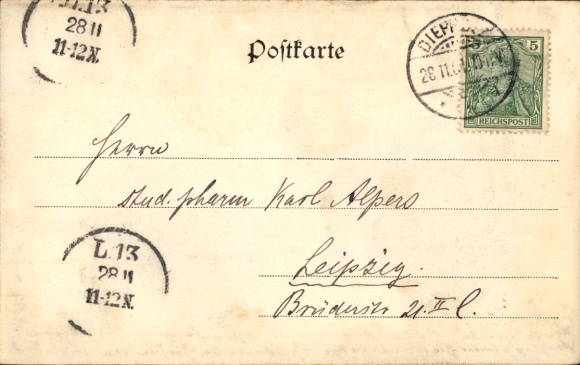 L.13
28 11
11-12N.
Postkarte
DIEPH
28.11.
5
REICHSPOST
Herrn
stud. pharm Karl Alpers
Leipzig.
Brüderstr 21 II l.
L.13
28 11
11-12N.